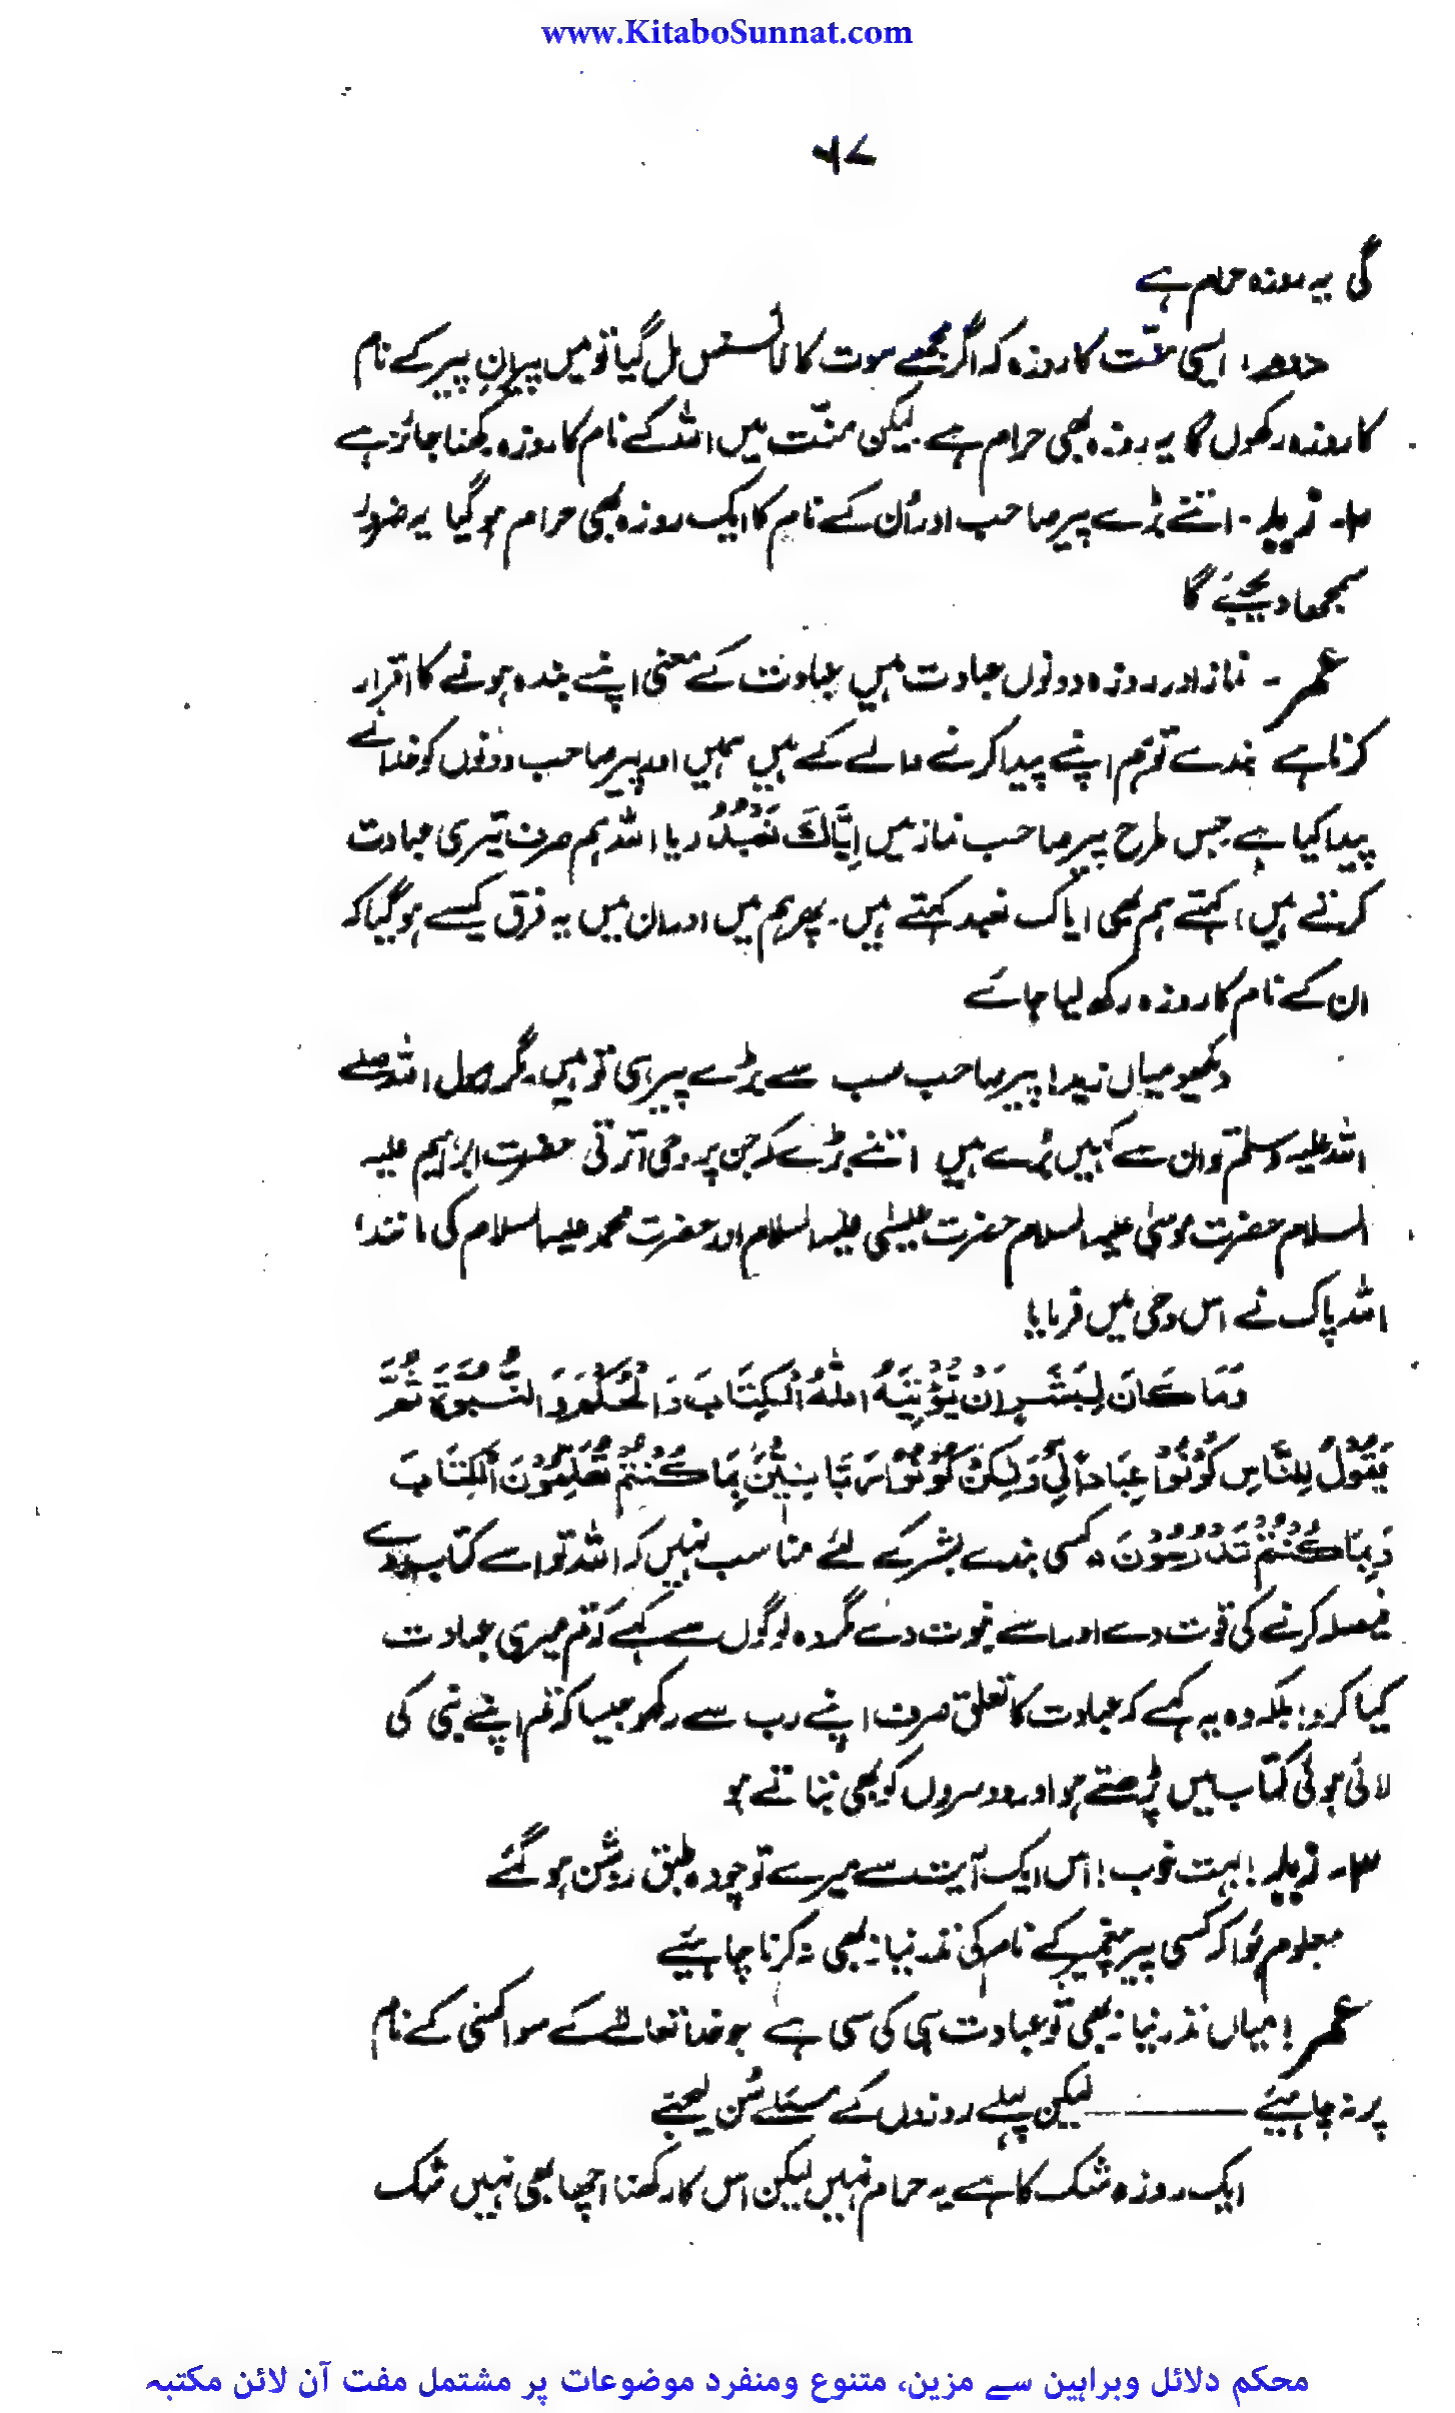 www.KitaboSunnat.com
۶۷
گی یہ روزہ حرام ہے
دوم، ایسی منّت کا روزہ کہ اگر مجھے سوت کا لائسنس مل گیا تو میں پیرانِ پیر کے نام
کا روزہ رکھوں گا یہ روزہ بھی حرام ہے لیکن منّت میں اللہ کے نام کا روزہ رکھنا جائز ہے
۲- زید - اتنے بڑے پیر صاحب اور اُن کے نام کا ایک روزہ بھی حرام ہو گیا یہ ضرور
سمجھا دیجئے گا
عمر - نماز اور روزہ دونوں عبادت ہیں عبادت کے معنی اپنے بندہ ہونے کا اقرار
کرنا ہے بندے تو ہم اپنے پیدا کرنے والے کے ہیں ہمیں اور پیر صاحب دونوں کو خدا نے
پیدا کیا ہے جس طرح پیر صاحب نماز میں اِیَّاکَ نَعْبُدُ (یا اللہ ہم صرف تیری عبادت
کرتے ہیں) کہتے ہم بھی ایاک نعبد کہتے ہیں۔ پھر ہم میں اور ان میں یہ فرق کیسے ہو گیا کہ
ان کے نام کا روزہ رکھ لیا جائے
دیکھو میاں زید! پیر صاحب سب سے بڑے پیر ہی تو ہیں۔ مگر رسول اللہ صلے
اللہ علیہ وسلم تو ان سے کہیں بڑے ہیں اتنے بڑے کہ جن پر وحی اُترتی حضرت ابراہیم علیہ
السلام حضرت موسیٰ علیہ السلام حضرت عیسٰی علیہ السلام اور حضرت محمد علیہ السلام کی مانند،
اللہ پاک نے اس وحی میں فرمایا
وَمَا کَانَ لِبَشَرٍ اَنْ یُّؤْتِیَہُ اللّٰہُ الْکِتَابَ وَالْحُکْمَ وَالنُّبُوَّۃَ ثُمَّ
یَقُوْلَ لِلنَّاسِ کُوْنُوْا عِبَادًا لِّیْ وَلٰکِنْ کُوْنُوْا رَبَّانِیّٖنَ بِمَا کُنْتُمْ تُعَلِّمُوْنَ الْکِتَابَ
وَبِمَا کُنْتُمْ تَدْرُسُوْنَ ہ کسی بندے بشر کے لئے مناسب نہیں کہ اللہ تو اسے کتاب دے
فیصلہ کرنے کی قوت دے اور اسے نبوت دے مگر وہ لوگوں سے کہے کہ تم میری عبادت
کیا کرو! بلکہ وہ یہ کہے کہ عبادت کا تعلق صرف اپنے رب سے رکھو جیسا کہ تم اپنے نبی کی
لائی ہوئی کتاب میں پڑھتے ہو اور دوسروں کو بھی بتاتے ہو
۳- زید! بہت خوب! اس ایک آیت سے میرے تو چودہ طبق روشن ہو گئے
معلوم ہُوا کہ کسی پیر پیغمبر کے نام کی نذر نیاز بھی نہ کرنا چاہئیے
عمر! میاں نذر نیاز بھی تو عبادت ہی کی سی ہے جو خدا تعالےٰ کے سوا کسی کے نام
پر نہ چاہئیے ——— لیکن پہلے روزوں کے مسئلے سُن لیجئے
ایک روزہ شک کا ہے یہ حرام نہیں لیکن اس کا رکھنا اچھا بھی نہیں شک
محکم دلائل وبراہین سے مزین، متنوع ومنفرد موضوعات پر مشتمل مفت آن لائن مکتبہ